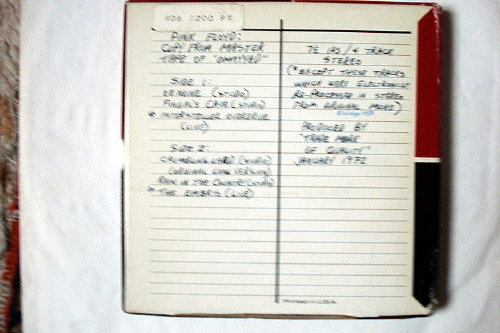 406 1200 FT.
PINK FLOYD:
COPY FROM MASTER
TAPE OF "OMAYYAD"
SIDE 1:
OENONE (STUDIO)
FINGAL'S CAVE (STUDIO)
* INTERSTELLAR OVERDRIVE
(LIVE)
SIDE 2:
CRUMBLING LAND (STUDIO)
(ORIGINAL LONG VERSION)
RAIN IN THE COUNTRY (STUDIO)
* THE EMBRYO (LIVE)
7½ IPS / 4 TRACK
STEREO
(* EXCEPT THESE TRACKS
WHICH WERE ELECTRONICALLY
RE-PROCESSED IN STEREO
FROM ORIGINAL MONO)
PRODUCED BY
"TRADE MARK
OF QUALITY"
JANUARY 1972